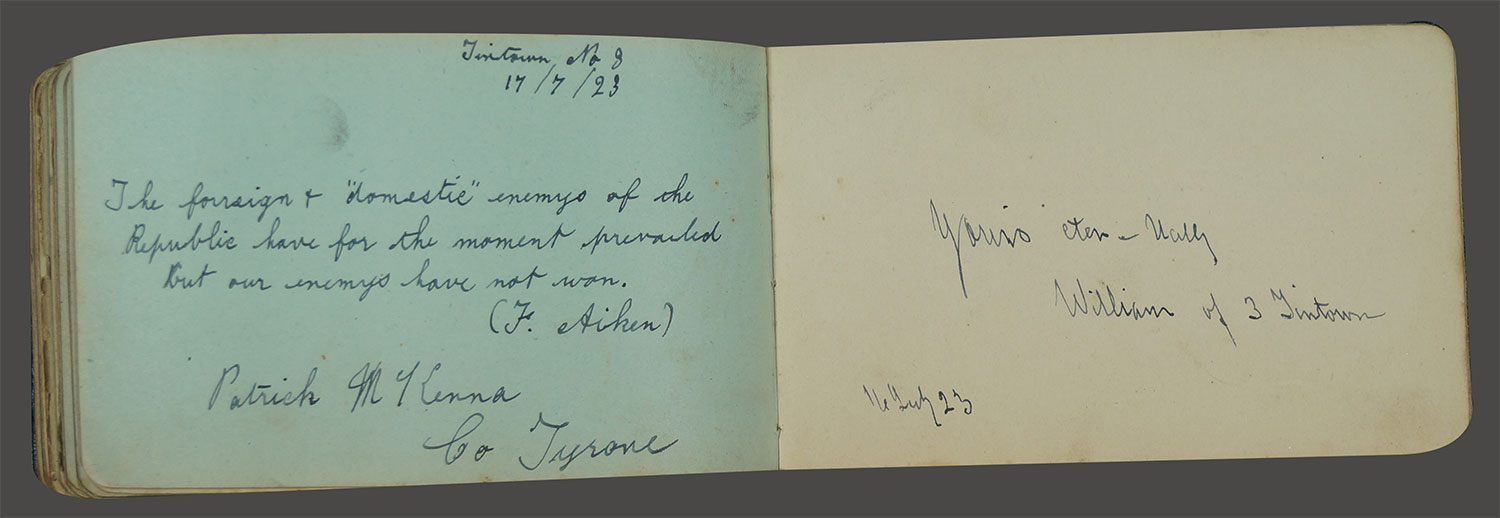 Tintown No 8
17/7/23
The forsign & "domestic" enemys of the
Republic have for the moment prevailed
But our enemys have not won.
(F. Aiken)
Patrick McKenna
Co Tyrone
Yours eter-nally
William of 3 Tintown
16 July 23